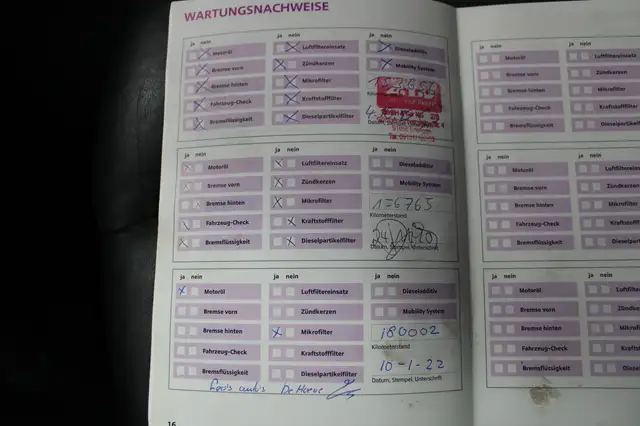 WARTUNGSNACHWEISE
ja nein
ja nein
ja nein
Motoröl
Bremse vorn
Bremse hinten
Fahrzeug-Check
Bremsflüssigkeit
Luftfiltereinsatz
Zündkerzen
Mikrofilter
Kraftstofffilter
Dieselpartikelfilter
Dieseladditiv
Mobility System
ja nein
ja nein
ja nein
Motoröl
Bremse vorn
Bremse hinten
Fahrzeug-Check
Bremsflüssigkeit
Luftfiltereinsatz
Zündkerzen
Mikrofilter
Kraftstofffilter
Dieselpartikelfilter
Dieseladditiv
Mobility System
176765
Kilometerstand
Datum, Stempel, Unterschrift
ja nein
ja nein
ja nein
Motoröl
Bremse vorn
Bremse hinten
Fahrzeug-Check
Bremsflüssigkeit
Luftfiltereinsatz
Zündkerzen
Mikrofilter
Kraftstofffilter
Dieselpartikelfilter
Dieseladditiv
Mobility System
180002
Kilometerstand
10-1-22
Datum, Stempel, Unterschrift
16
ja nein
ja nein
Motoröl
Bremse vorn
Bremse hinten
Fahrzeug-Check
Bremsflüssigkeit
Luftfiltereinsatz
Zündkerzen
Mikrofilter
Kraftstofffilter
Dieselpartikelfilter
ja nein
ja nein
Motoröl
Bremse vorn
Bremse hinten
Fahrzeug-Check
Bremsflüssigkeit
ja nein
ja nein
Motoröl
Bremse vorn
Bremse hinten
Fahrzeug-Check
Bremsflüssigkeit